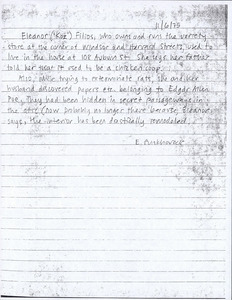 11/6/75
Eleanor ("Koz") Fillos, who owns and runs the variety
store at the corner of Windsor and Harvard Streets, used to
live in the house at 108 Auburn St. She says her father
told her that it used to be a chicken coop.
Also, while trying to exterminate rats, she and her
husband discovered papers etc. belonging to Edgar Allen
Poe. They had been hidden in secret passageways in
the attic (now probably no longer there because, Eleanor
says, the interior has been drastically remodeled.
E.